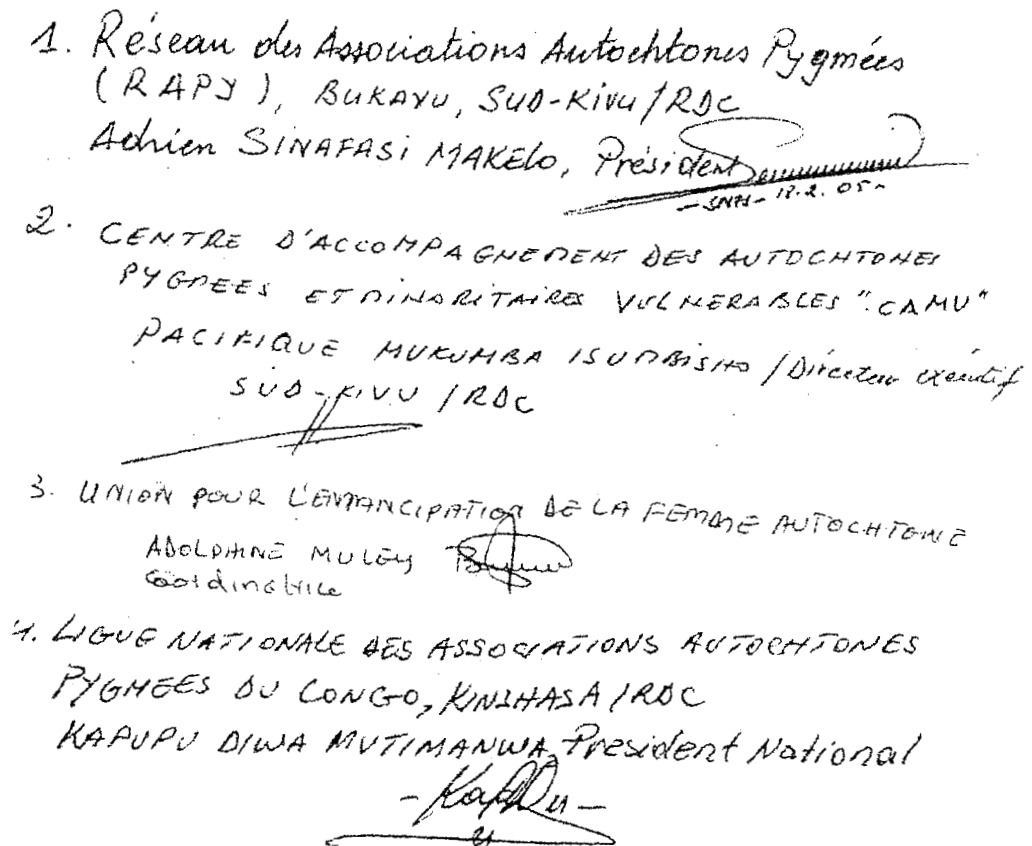 1. Réseau des Associations Autochtones Pygmées
(RAPY), BUKAVU, SUD-KIVU/RDC
Adrien SINAFASI MAKELO, Président
18.2.05
2. CENTRE D'ACCOMPAGNEMENT DES AUTOCHTONES
PYGMEES ET MINORITAIRES VULNERABLES "CAMV"
PACIFIQUE MUKUMBA ISUMBISHO / Directeur exécutif
SUD-KIVU / RDC
3. UNION POUR L'EMANCIPATION DE LA FEMME AUTOCHTONE
ADOLPHINE MULEY
Coordinatrice
4. LIGUE NATIONALE DES ASSOCIATIONS AUTOCHTONES
PYGMEES DU CONGO, KINSHASA/RDC
KAPUPU DIWA MUTIMANWA, President National